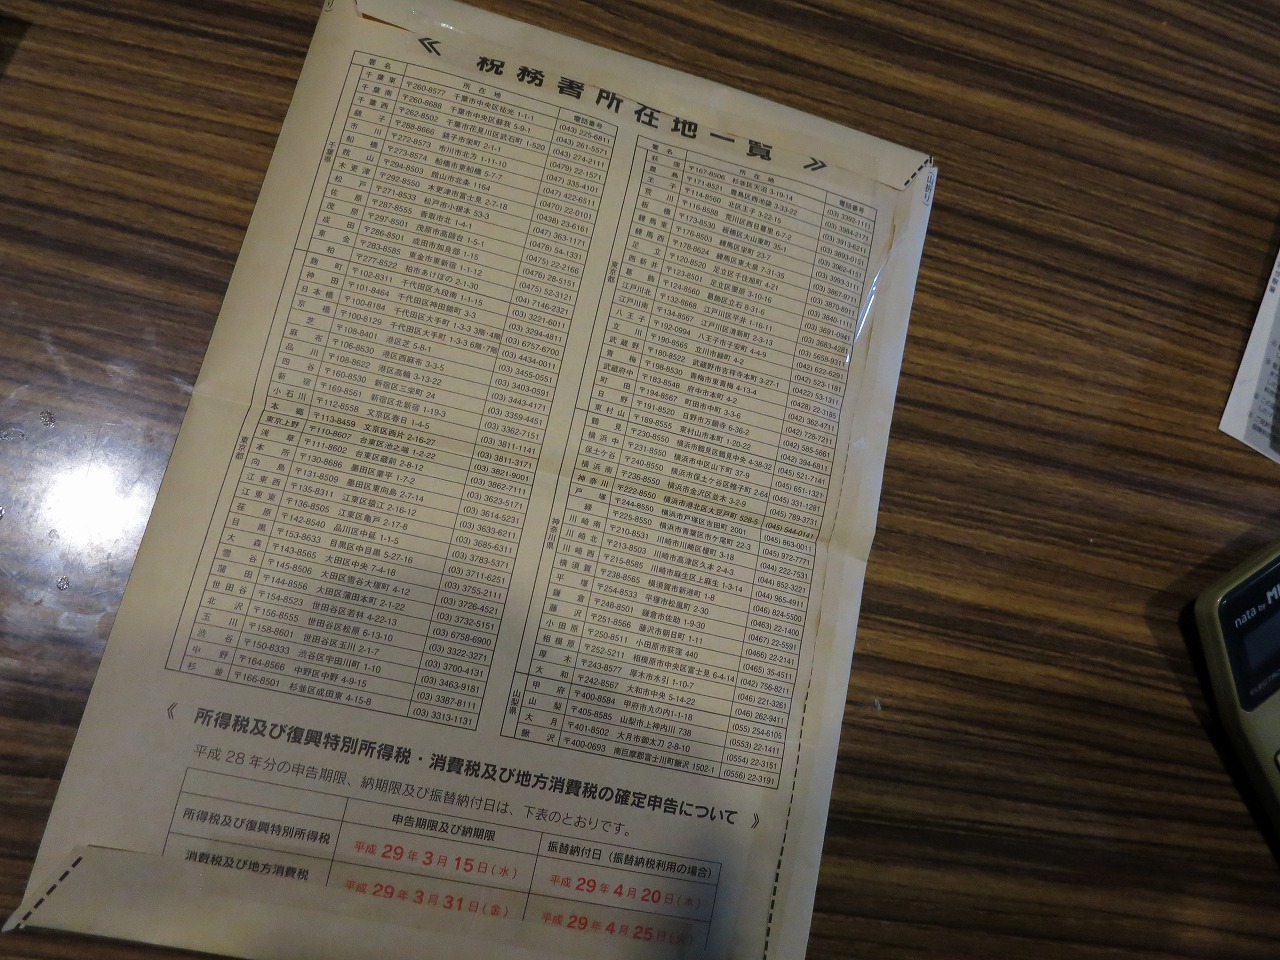 《 税務署所在地一覧 》
署名 所在地 電話番号
千葉県
千葉東 〒260-8577 千葉市中央区祐光 1-1-1 (043) 225-6811
千葉南 〒260-8688 千葉市中央区蘇我 5-9-1 (043) 261-5571
千葉西 〒262-8502 千葉市花見川区武石町 1-520 (043) 274-2111
銚子 〒288-8666 銚子市栄町 2-1-1 (0479) 22-1571
市川 〒272-8573 市川市北方 1-11-10 (047) 335-4101
船橋 〒273-8574 船橋市東船橋 5-7-7 (047) 422-6511
館山 〒294-8503 館山市北条 1164 (0470) 22-0101
木更津 〒292-8550 木更津市富士見 2-7-18 (0438) 23-6161
松戸 〒271-8533 松戸市小根本 53-3 (047) 363-1171
佐原 〒287-8555 香取市北 1-4-1 (0478) 54-1331
茂原 〒297-8501 茂原市高師台 1-5-1 (0475) 22-2166
成田 〒286-8501 成田市加良部 1-15 (0476) 28-5151
東金 〒283-8585 東金市東新宿 1-1-12 (0475) 52-3121
柏 〒277-8522 柏市あけぼの 2-1-30 (04) 7146-2321
東京都
麹町 〒102-8311 千代田区九段南 1-1-15 (03) 3221-6011
神田 〒101-8464 千代田区神田錦町 3-3 (03) 3294-4811
日本橋 〒100-8184 千代田区大手町 1-3-3 3階・4階 (03) 6757-6700
京橋 〒100-8129 千代田区大手町 1-3-3 6階・7階 (03) 4434-0011
芝 〒108-8401 港区芝 5-8-1 (03) 3455-0551
麻布 〒106-8530 港区西麻布 3-3-5 (03) 3403-0591
品川 〒108-8622 港区高輪 3-13-22 (03) 3443-4171
四谷 〒160-8530 新宿区三栄町 24 (03) 3359-4451
新宿 〒169-8561 新宿区北新宿 1-19-3 (03) 3362-7151
小石川 〒112-8558 文京区春日 1-4-5 (03) 3811-1141
本郷 〒113-8459 文京区西片 2-16-27 (03) 3811-3171
東京上野 〒110-8607 台東区池之端 1-2-22 (03) 3821-9001
浅草 〒111-8602 台東区蔵前 2-8-12 (03) 3862-7111
本所 〒130-8686 墨田区業平 1-7-2 (03) 3623-5171
向島 〒131-8509 墨田区東向島 2-7-14 (03) 3614-5231
江東西 〒135-8311 江東区猿江 2-16-12 (03) 3633-6211
江東東 〒136-8505 江東区亀戸 2-17-8 (03) 3685-6311
荏原 〒142-8540 品川区中延 1-1-5 (03) 3783-5371
目黒 〒153-8633 目黒区中目黒 5-27-16 (03) 3711-6251
大森 〒143-8565 大田区中央 7-4-18 (03) 3755-2111
雪谷 〒145-8506 大田区雪谷大塚町 4-12 (03) 3726-4521
蒲田 〒144-8556 大田区蒲田本町 2-1-22 (03) 3732-5151
世田谷 〒154-8523 世田谷区若林 4-22-13 (03) 6758-6900
北沢 〒156-8555 世田谷区松原 6-13-10 (03) 3322-3271
玉川 〒158-8601 世田谷区玉川 2-1-7 (03) 3700-4131
渋谷 〒150-8333 渋谷区宇田川町 1-10 (03) 3463-9181
中野 〒164-8566 中野区中野 4-9-15 (03) 3387-8111
杉並 〒166-8501 杉並区成田東 4-15-8 (03) 3313-1131
署名 所在地 電話番号
東京都
荻窪 〒167-8506 杉並区天沼 3-19-14 (03) 3392-1111
豊島 〒171-8521 豊島区西池袋 3-33-22 (03) 3984-2171
王子 〒114-8560 北区王子 3-22-15 (03) 3913-6211
荒川 〒116-8588 荒川区西日暮里 6-7-2 (03) 3893-0151
板橋 〒173-8530 板橋区大山東町 35-1 (03) 3962-4151
練馬東 〒176-8503 練馬区栄町 23-7 (03) 3993-3111
練馬西 〒178-8624 練馬区東大泉 7-31-35 (03) 3867-9711
足立 〒120-8520 足立区千住旭町 4-21 (03) 3870-8911
西新井 〒123-8501 足立区栗原 3-10-16 (03) 3840-1111
葛飾 〒124-8560 葛飾区立石 6-31-6 (03) 3691-0941
江戸川北 〒132-8668 江戸川区平井 1-16-11 (03) 3683-4281
江戸川南 〒134-8567 江戸川区清新町 2-3-13 (03) 5658-9311
八王子 〒192-0994 八王子市子安町 4-4-9 (042) 622-6291
立川 〒190-8565 立川市緑町 4-2 (042) 523-1181
武蔵野 〒180-8522 武蔵野市吉祥寺本町 3-27-1 (0422) 53-1311
青梅 〒198-8530 青梅市東青梅 4-13-4 (0428) 22-3185
武蔵府中 〒183-8548 府中市本町 4-2 (042) 362-4711
町田 〒194-8567 町田市中町 3-3-6 (042) 728-7211
日野 〒191-8520 日野市万願寺 6-36-2 (042) 585-5661
東村山 〒189-8555 東村山市本町 1-20-22 (042) 394-6811
神奈川県
鶴見 〒230-8550 横浜市鶴見区鶴見中央 4-38-32 (045) 521-7141
横浜中 〒231-8550 横浜市中区山下町 37-9 (045) 651-1321
保土ケ谷 〒240-8550 横浜市保土ケ谷区帷子町 2-64 (045) 331-1281
横浜南 〒236-8550 横浜市金沢区並木 3-2-9 (045) 789-3731
神奈川 〒222-8550 横浜市港北区大豆戸町 528-5 (045) 544-0141
戸塚 〒244-8550 横浜市戸塚区吉田町 2001 (045) 863-0011
緑 〒225-8550 横浜市青葉区市ケ尾町 22-3 (045) 972-7771
川崎南 〒210-8531 川崎市川崎区榎町 3-18 (044) 222-7531
川崎北 〒213-8503 川崎市高津区久本 2-4-3 (044) 852-3221
川崎西 〒215-8585 川崎市麻生区上麻生 1-3-14 (044) 965-4911
横須賀 〒238-8565 横須賀市新港町 1-8 (046) 824-5500
平塚 〒254-8533 平塚市松風町 2-30 (0463) 22-1400
鎌倉 〒248-8501 鎌倉市佐助 1-9-30 (0467) 22-5591
藤沢 〒251-8566 藤沢市朝日町 1-11 (0466) 22-2141
小田原 〒250-8511 小田原市荻窪 440 (0465) 35-4511
相模原 〒252-5211 相模原市中央区富士見 6-4-14 (042) 756-8211
厚木 〒243-8577 厚木市水引 1-10-7 (046) 221-3261
大和 〒242-8567 大和市中央 5-14-22 (046) 262-9411
山梨県
甲府 〒400-8584 甲府市丸の内1-1-18 (055) 254-6105
山梨 〒405-8585 山梨市上神内川 738 (0553) 22-1411
大月 〒401-8502 大月市御太刀 2-8-10 (0554) 22-3151
鰍沢 〒400-0693 南巨摩郡富士川町鰍沢 1502-1 (0556) 22-3191
《 所得税及び復興特別所得税・消費税及び地方消費税の確定申告について 》
平成 28 年分の申告期限、納期限及び振替納付日は、下表のとおりです。
申告期限及び納期限 振替納付日（振替納税利用の場合）
所得税及び復興特別所得税 平成 29 年 3 月 15 日（水） 平成 29 年 4 月 20 日（木）
消費税及び地方消費税 平成 29 年 3 月 31 日（金） 平成 29 年 4 月 25 日（火）
（山折り）
nata by